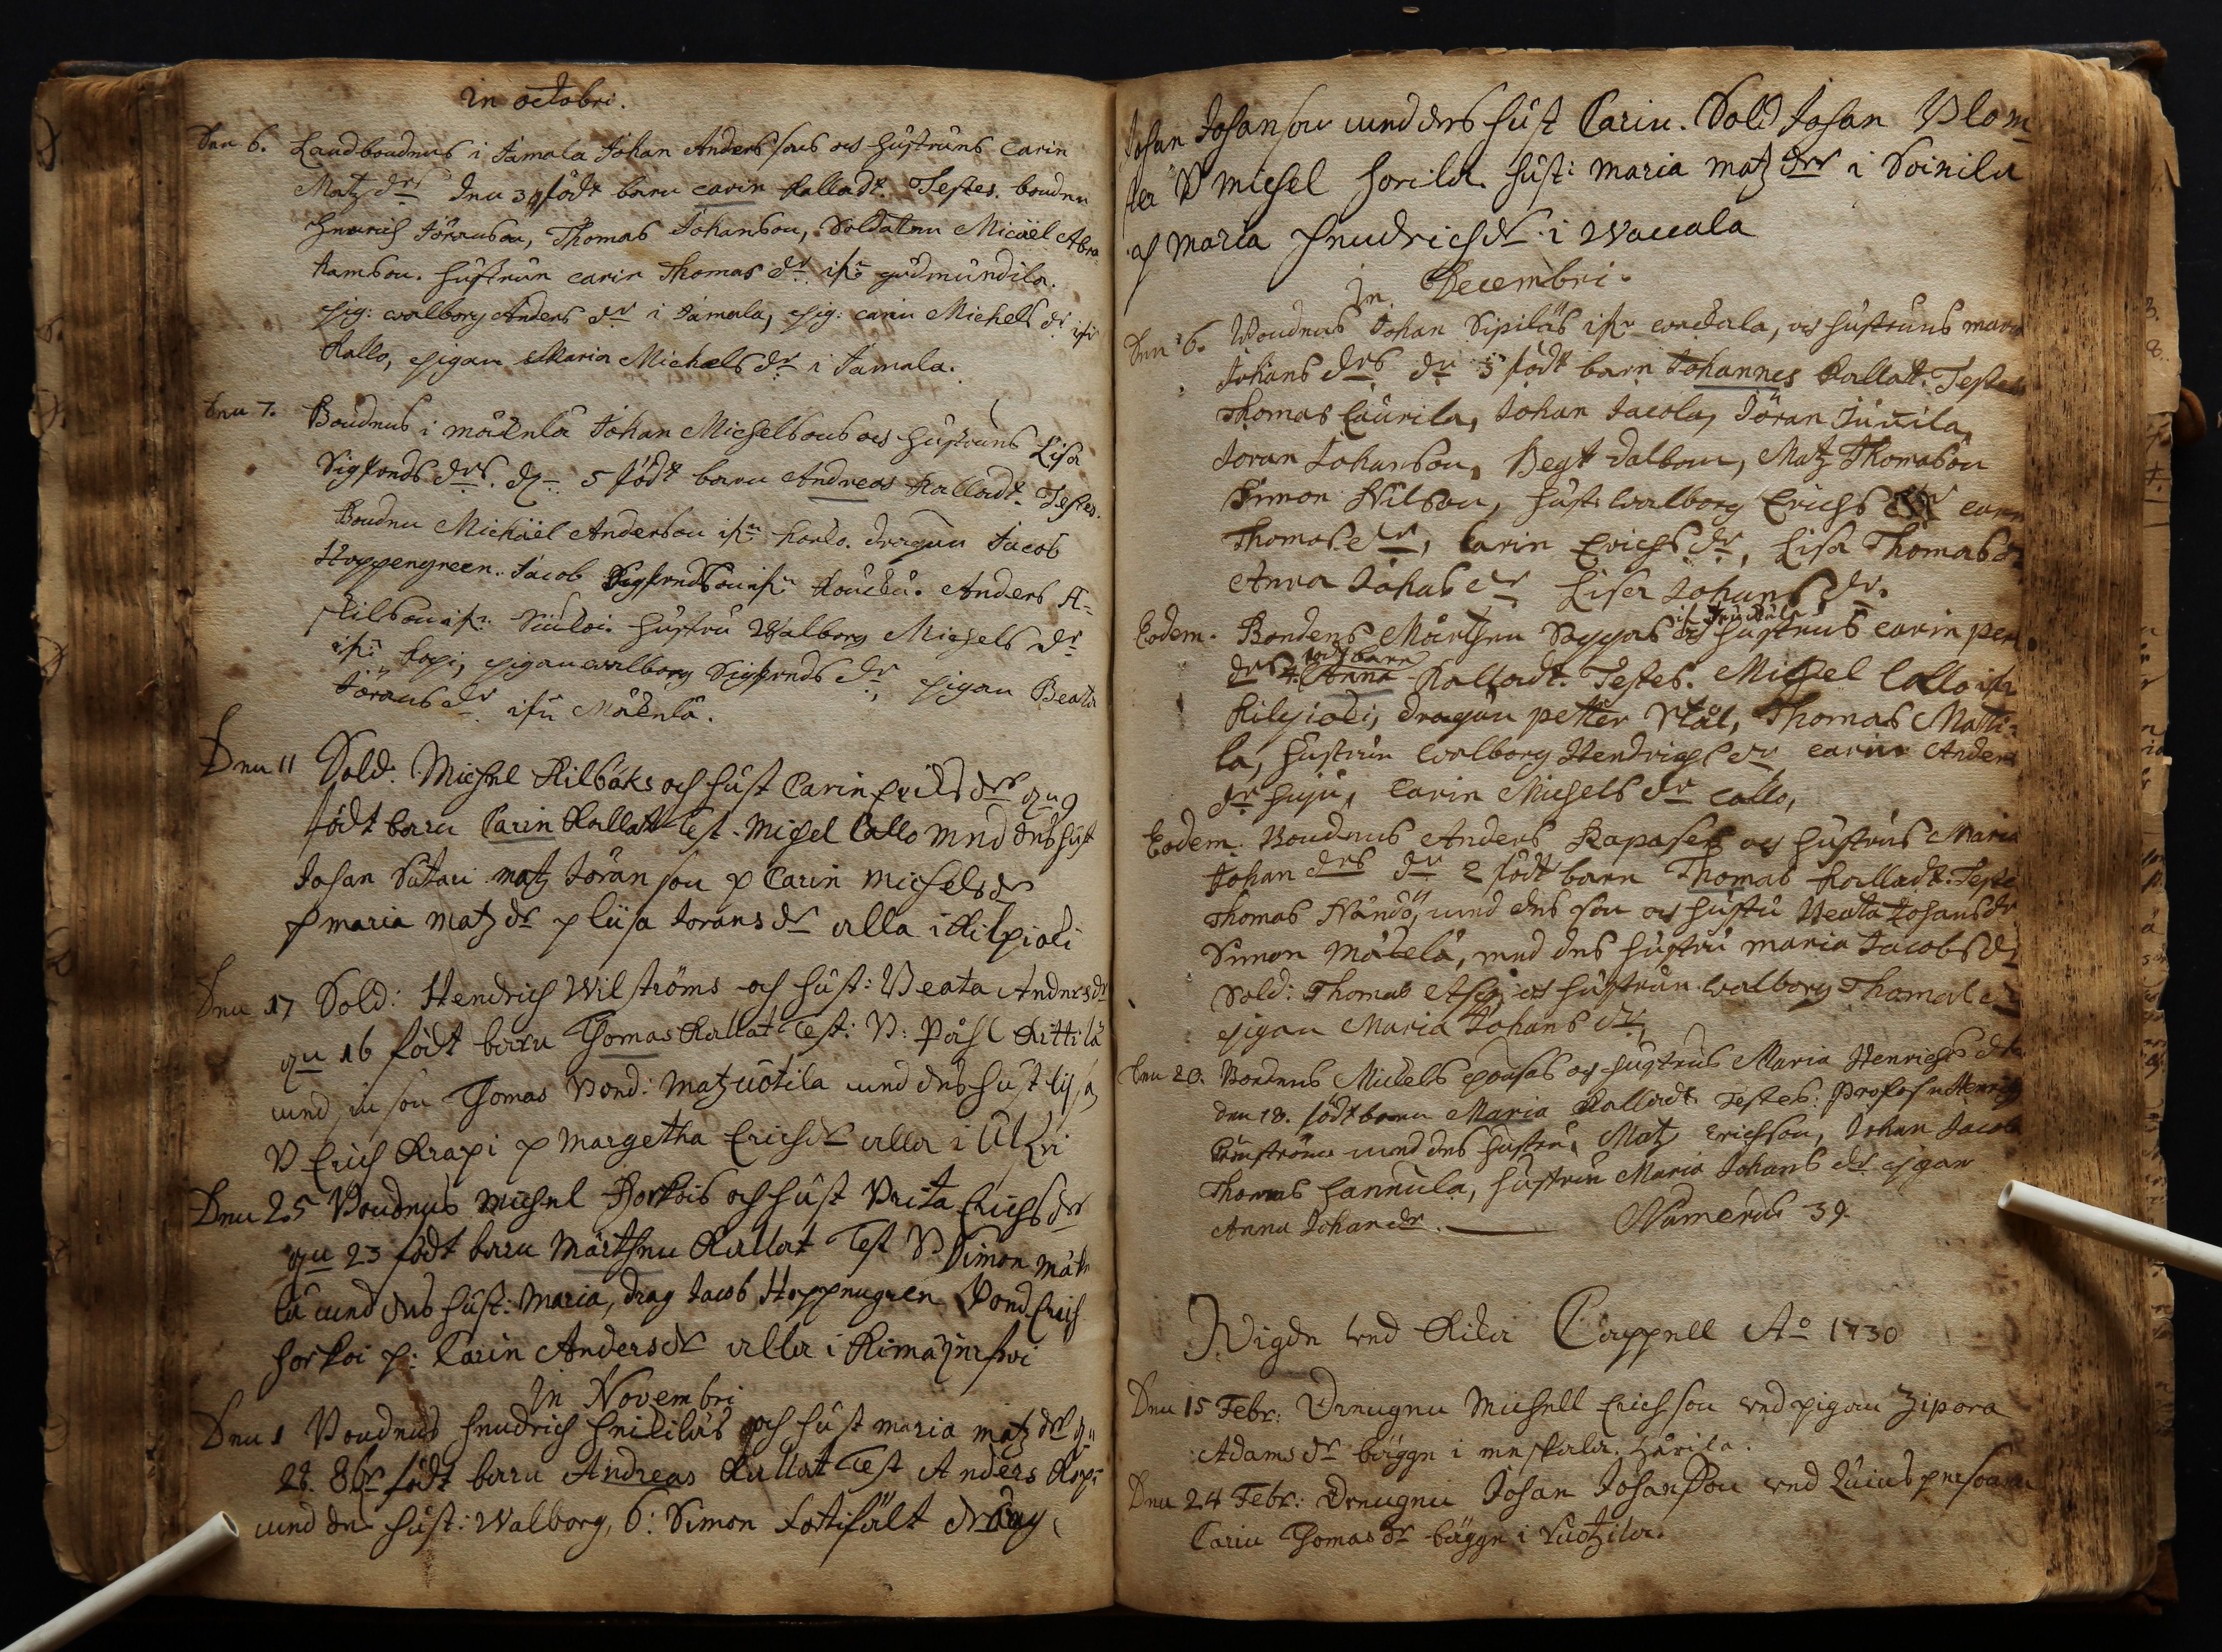 In octobri.
Den 6. Landbondens i Jamala Johan Anderssons och hustruns Carin
Matz drs den 3 födt barn Carin kalladt. Testes. bonden
Henrich Jöransson, Thomas Johansson, Soldaten Micäel Abra-
hamson. hustrun Carin Thomas dr ifrn gudmundila.
pig: walborg Anders dr i Jamala, pig: Carin Michels dr ifrn
Kallo, pigan Maria Michaels dr i Jamala.
Den 7. Bondens i mäkelä Johan Michelsons och hustruns Lisa
Sigfreds drs. dn 5 födt barn Andreas kalladt. Testes.
Bonden Michäel Andersson ifrn horko. dragun Jacob
Hoppengreen. Jacob Sigfredson ifrn Kouku. Anders A-
skilson ifrn hustru Walborg Michels dr
ifrn Kopi, pigan walborg Sigfreds dr, pigan Beata
Jörans dr ifrn Mäkelä.
Den 11 Sold: Michel Kilbäks och hust Carin Erichs drs dn 9
födt barn Carin Kallatt Test. Michel Callo med dess hust
Johan Sutari matz Jöran son p Carin Michelsdr
p maria matz dr p liisa Joransdr alla i Kilpioki
Den 17 Sold: Hendrich Wilströms och hust: Beata Andersdr
dn 16 födt barn Thomas Kallat Test: B: Påhl Kittilä
med sin son Thomas Bond: matz uotila med dess hust lisa
B Erich Krapi p margetha Erichsdr alla i Ulkri
Den 25 Bondens Michel Horkois och hust Brita Erichsdr
dn 23 födt barn Mårthen Kallat Test B Simon mäke
lä med dess hust: Maria, drag Jacob Hoppengren Bond. Erich
horkoi p: Carin Andersdr alla i
In Novembri
Den 1 Bondens Hendrich Heikiläs och hust maria matz dr dn
28. 8br födt barn Andreas Kallat Test Anders Kopi
med des hust: Walborg, B: Simon drag
Johan Johansson med des hust Carin. Sold Johan Blom
ster B Michel horila hust: Maria matz dr i Soinila
och Maria Hendrichsdr i Waccala
In Decembri.
Den 6. Bondens Johan Sipiläs ifrn, och hustruns maria
Johans drs dn 5 födt barn Johannes Kallatt. Testes
Thomas Caurila, Johan Jacola, Jöran Junnila,
Joran Johanson, Begt Dalbom, Matz Thomason
Simon Nilson, hust. walborg Erichs dr Carin
Thomas dr, Carin Erichs dr, Lisa Thomas dr
Anna Johans dr Lisa Johans dr.
Eodem. Bondens Mårthen Soppas och hustrus Carin per
drs 4. födt barn Anna Kalladt. Testes. Michel Callo ifrn
Kilpioki, dragun petter Stål, Thomas Matti-
la, hustrun walborg Hendrichs dr Carin Anders
dr huju, Carin Michels dr Callo,
Eodem. Bondens Anders Kapasers och hustrus Maria
Johan drs dn 2 födt barn Thomas kalladt. Teste
Thomas Nändö, med des son och hustru Beata Johansdr
Simon Mäkelä, med des hustru maria Jacobs dr
Sold: Thomas Asp, och hustrun walborg Thomas dr
pigan Maria Johans dr.
Den 20. Bondens Michels pousas och hustrus Maria Henrichs drs
den 18. födt barn Maria Kalladt. Testes: Henrich
med des hustru, Matz Erichson, Johan Jacola
Thomas Hannula, hustrun Maria Johans dr pigan
Anna Johan dr. Numerus 39.
Wigde wed Kika Cappell Ao 1730
Den 15 Febr: Drengen Michell Erichson wed pigan Zipora
Adams dr bägge i
Den 24 Febr: Drengen Johan Johansson wed
Carin Thomas dr bägge i